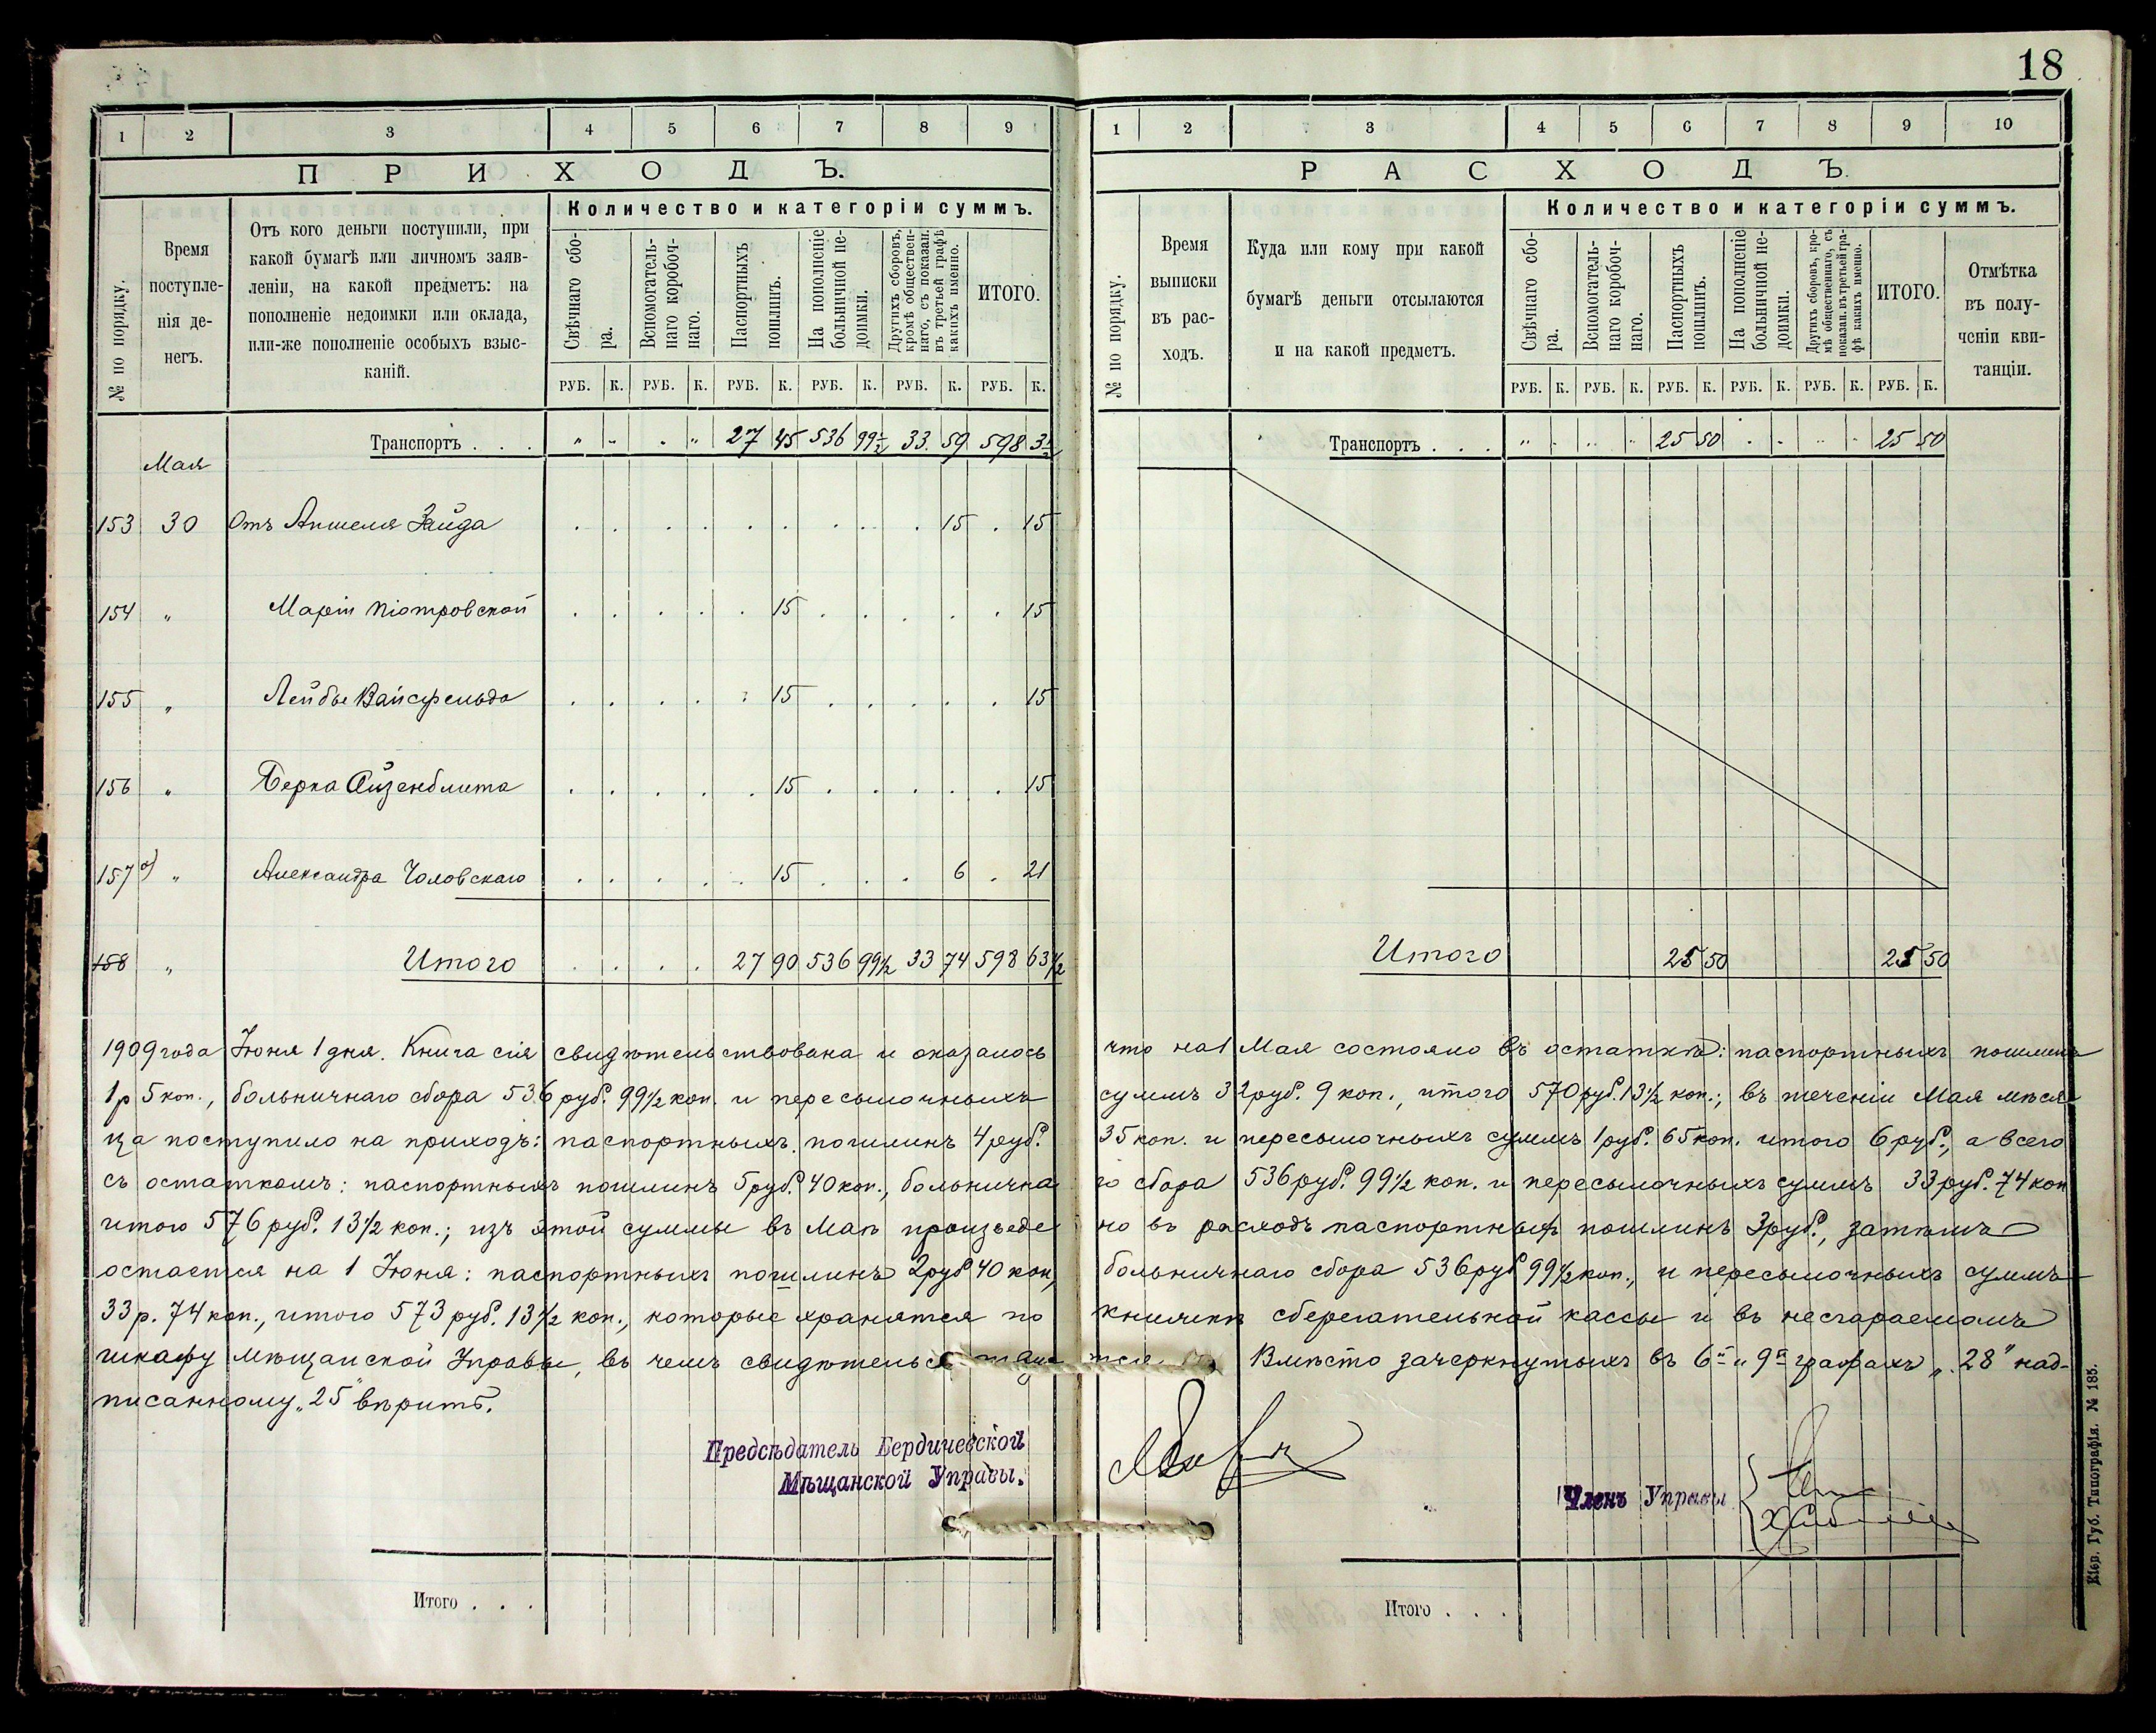 18
1 2 3 4 5 6 7 8 9
ПРИХОДЪ.
№ по порядку.
Время поступле-
нія де-
негъ.
Отъ кого деньги поступили, при
какой бумагѣ или личномъ заяв-
леніи, на какой предметъ: на
пополненіе недоимки или оклада,
или-же пополненіе особыхъ взыс-
каній.
Количество и категоріи суммъ.
Свѣчнаго сбо-
ра.
Вспомогатель-
наго коробоч-
наго.
Паспортныхъ
пошлинъ.
На пополненіе
больничной не-
доимки.
Другихъ сборовъ,
кромѣ обществен-
наго, съ показан.
въ третьей графѣ
какихъ именно.
ИТОГО.
РУБ. К. РУБ. К. РУБ. К. РУБ. К. РУБ. К. РУБ. К.
Транспортъ . . . „ „ . „ 27 45 536 99½ 33. 59 598 3½
Мая
153 30 Отъ Аншеля Зайда 15 15
154 „ Маріи Піотровской 15 15
155 „ Лейбы Вайсфельда 15 15
156 „ Берка Айзенблита 15 15
157 „ Александра Чоловскаго 15 6 21
158 „ Итого 27 90 536 99½ 33 74 598 63½
1 2 3 4 5 6 7 8 9 10
РАСХОДЪ
№ по порядку.
Время
выписки
въ рас-
ходъ.
Куда или кому при какой
бумагѣ деньги отсылаются
и на какой предметъ.
Количество и категоріи суммъ.
Свѣчнаго сбо-
ра.
Вспомогатель-
наго коробоч-
наго.
Паспортныхъ
пошлинъ.
На пополненіе
больничной не-
доимки.
Другихъ сборовъ, кро-
мѣ общественнаго, съ
показан. въ третьей гра-
фѣ какихъ именно.
ИТОГО.
Отмѣтка
въ полу-
ченіи кви-
танціи.
РУБ. К. РУБ. К. РУБ. К. РУБ. К. РУБ. К. РУБ. К.
Транспортъ . . . 25 50 25 50
Итого 25 50 25 50
1909 года Іюня 1 дня. Книга сія свидѣтельствована и оказалось что на 1 Мая состояло въ остаткѣ: паспортныхъ пошлинъ
1 р 5 коп., больничнаго сбора 536 руб. 99½ коп. и пересылочныхъ суммъ 32 руб. 9 коп., итого 570 руб. 13½ коп.; въ теченіи Мая мѣся-
ца поступило на приходъ: паспортныхъ пошлинъ 4 руб. 35 коп. и пересылочныхъ суммъ 1 руб. 65 коп. итого 6 руб., а всего
съ остаткомъ: паспортныхъ пошлинъ 5 руб. 40 коп., больнична го сбора 536 руб. 99½ коп. и пересылочныхъ суммъ 33 руб. 74 коп
итого 576 руб. 13½ коп.; изъ этой суммы въ Маѣ произведе но въ расходъ паспортныхъ пошлинъ 3 руб., затѣмъ
остается на 1 Іюня: паспортныхъ пошлинъ 2 руб 40 коп, больничнаго сбора 536 руб 99½ коп., и пересылочныхъ суммъ
33 р. 74 коп., итого 573 руб. 13½ коп., которые хранятся по книжкѣ сберегательной кассы и въ несгараемомъ
шкафу Мѣщанской Управы, въ чемъ свидѣтельс Вмѣсто зачеркнутыхъ въ 6й и 9й графахъ „28" над-
писанному „25" вѣрить.
Предсѣдатель Бердичевской
Мѣщанской Управы.
Членъ Управы
Итого . . .
Итого . . .
Кіев. Губ. Типографія. № 185.